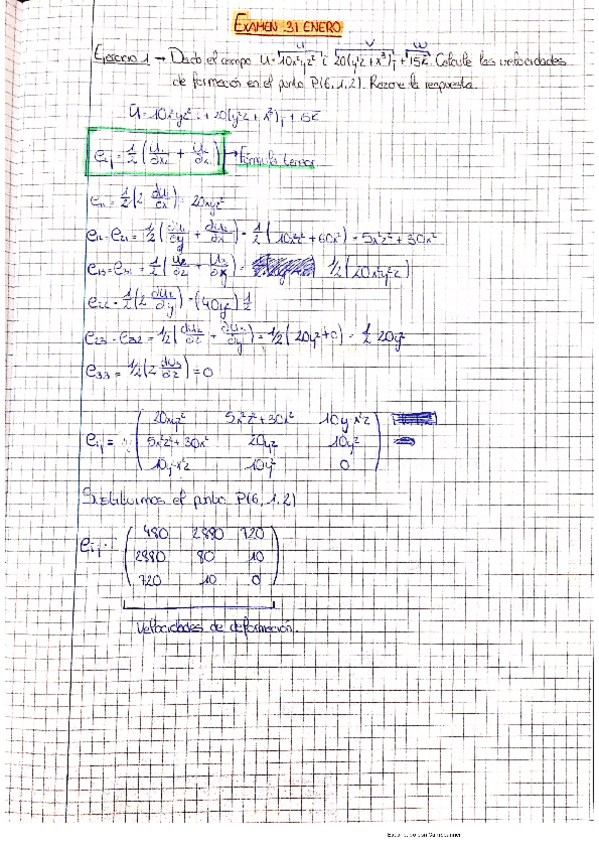 EXAMEN 31 ENERO
u v w
Ejercicio 1 → Dado el campo U = 10x²yz² i + 20(y²z + x³)j + 15k. Calcule las velocidades
de formación en el punto P(6,1,2). Razone la respuesta.
Ū = 10x²yz² i + 20(y²z + x³)j + 15k
eij = 1/2 (Ui/∂xj + Uj/∂xi) → Fórmula tensor
e11 = 1/2 (2 ∂u1/∂x) = 20xyz²
e12 = e21 = 1/2 (∂u1/∂y + ∂u2/∂x) = 1/2 (10x²z² + 60x²) = 5x²z² + 30x²
e13 = e31 = 1/2 (U1/∂z + U3/∂x) = 1/2 (20x²yz)
e22 = 1/2 (2 ∂u2/∂y) = (40yz) 1/2
e23 = e32 = 1/2 (∂u2/∂z + ∂u3/∂y) = 1/2 (20y² + 0) = 1/2 20y²
e33 = 1/2 (2 ∂u3/∂z) = 0
20xyz² 5x²z² + 30x² 10y·x²z
eij = 5x²z² + 30x² 20yz 10y²
10y·x²z 10y² 0
Sustituimos el punto P(6, 1, 2)
480 2880 720
eij = 2880 80 10
720 10 0
Velocidades de deformación.